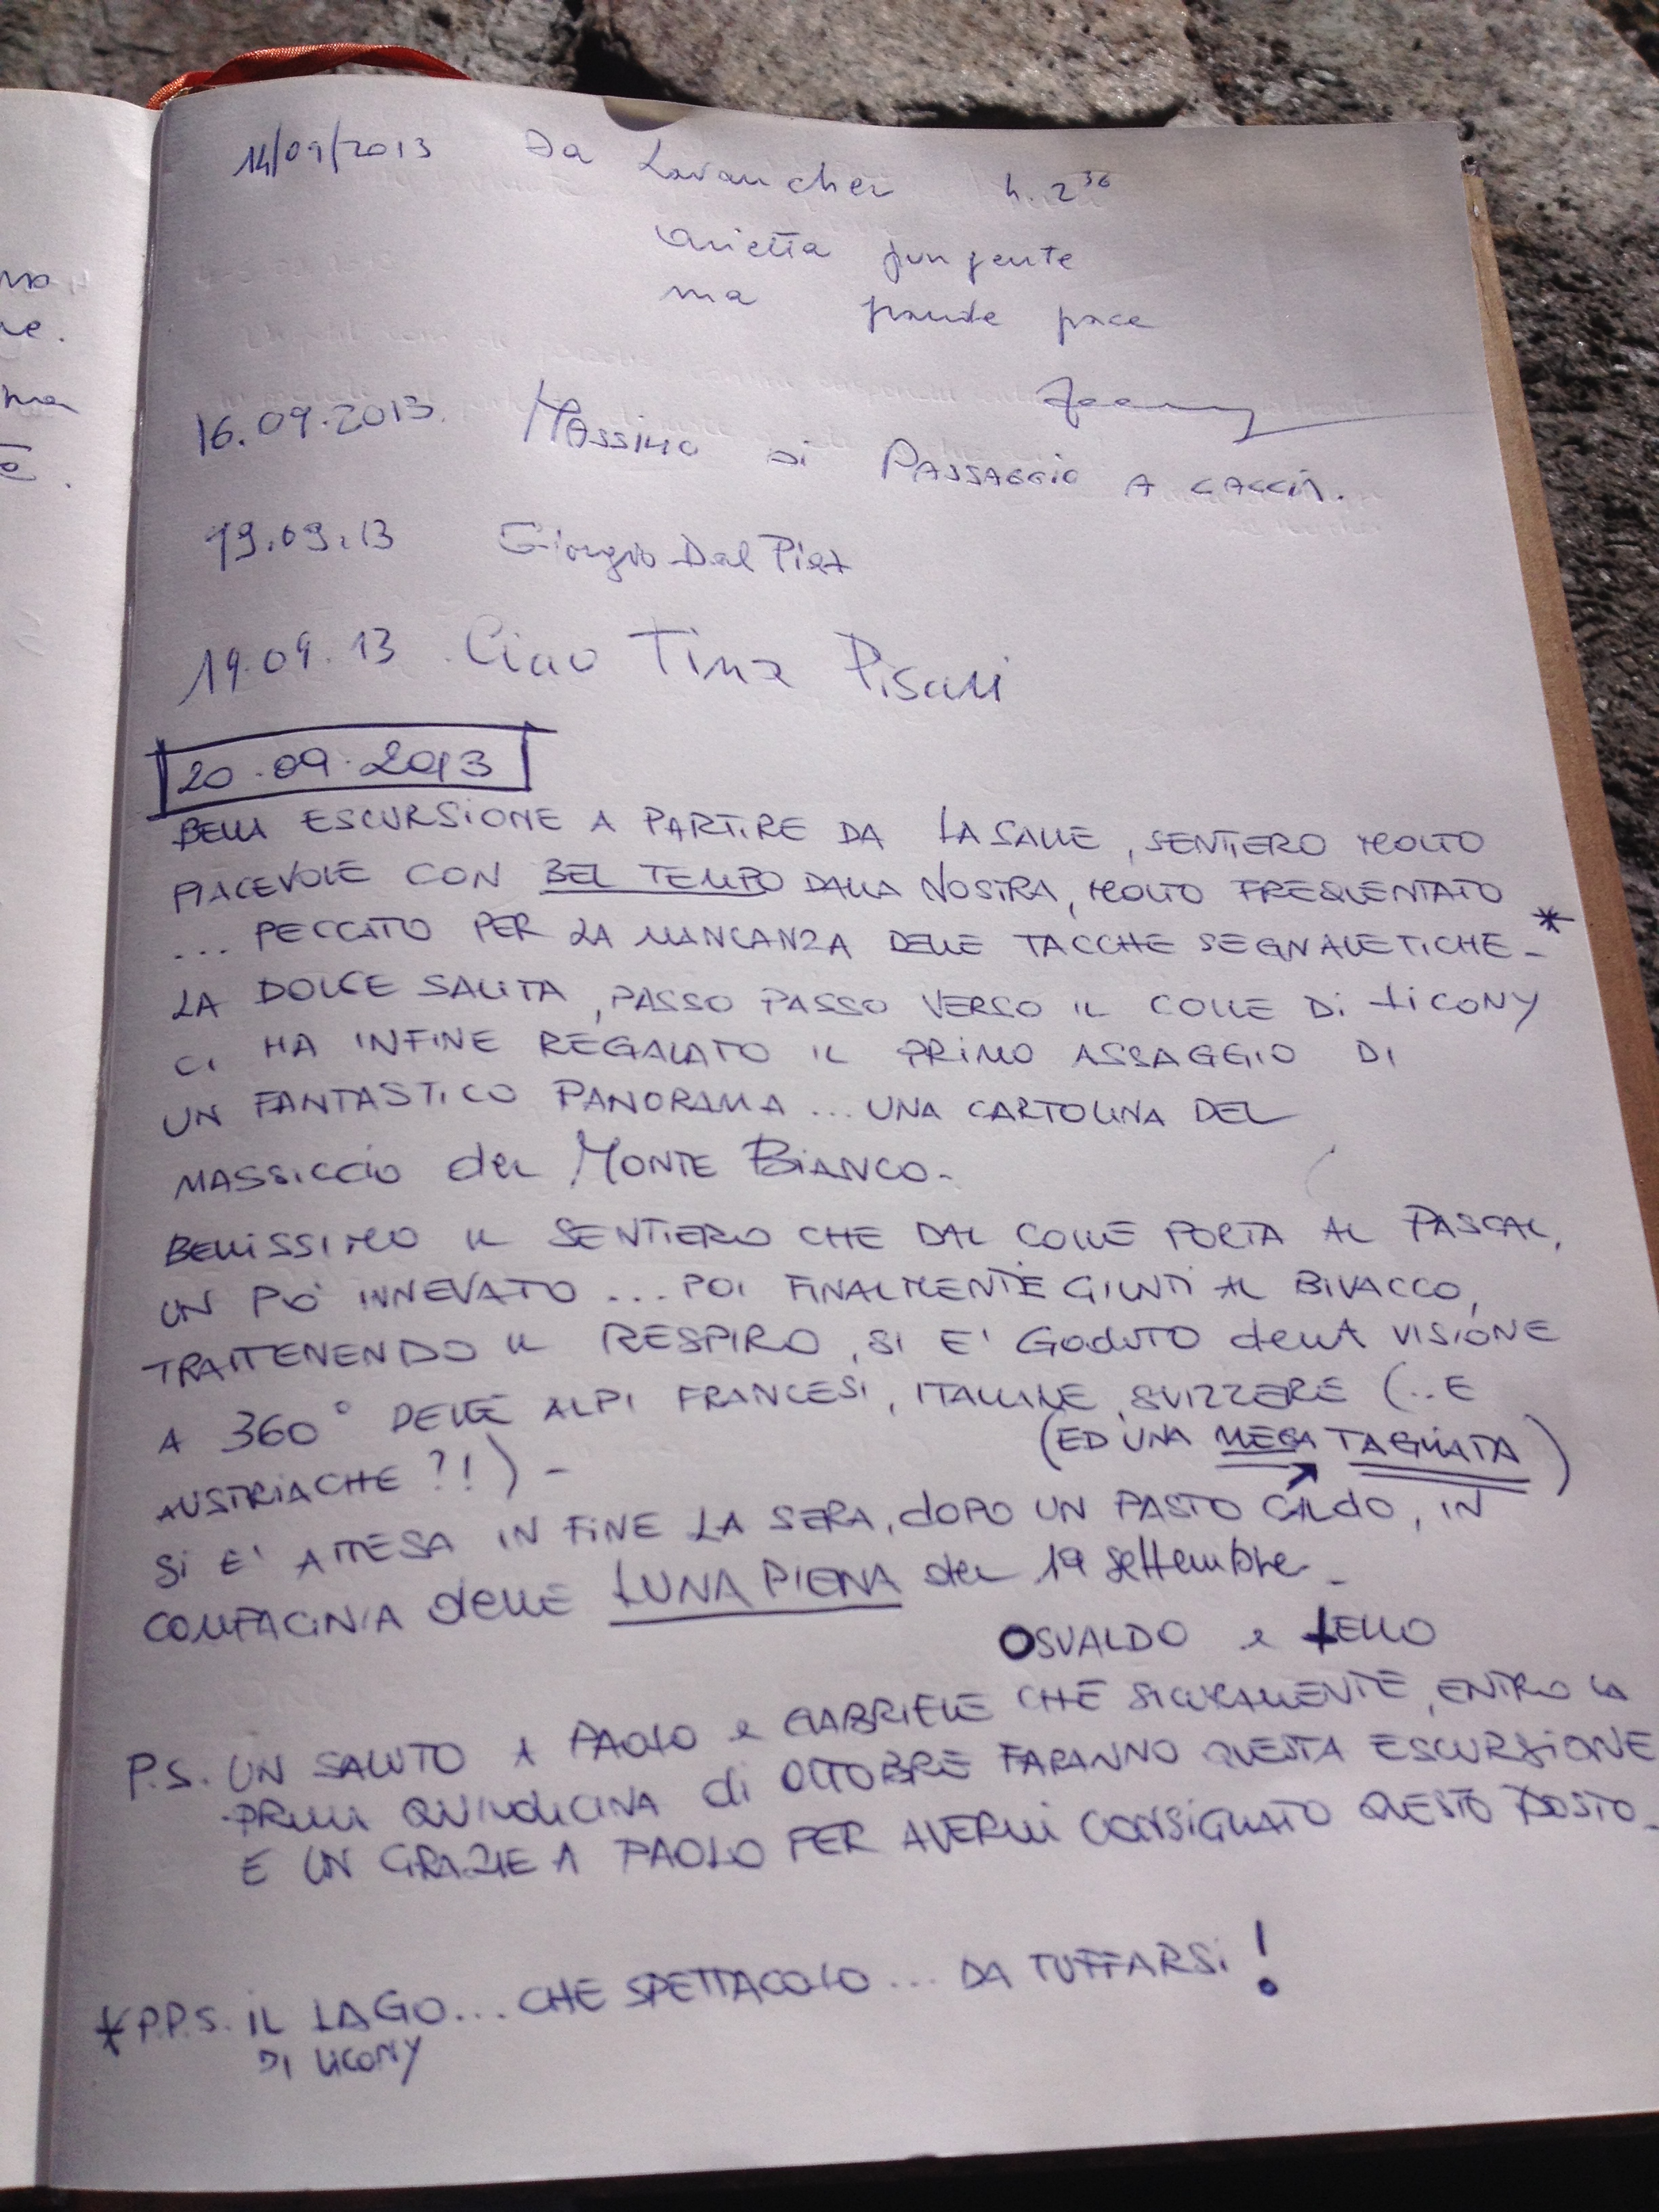 no
ne.
ma
e.
14/09/2013 Da Lavancher h. 2 36
arietta pungente
ma grande pace
16.09.2013. MASSIMO DI PASSAGGIO A CACCIA.
19.09.13 Giorgio Dal Piaz
19.09.13 Ciao Tina Pisani
20.09.2013
BELLA ESCURSIONE A PARTIRE DA LA SALLE, SENTIERO MOLTO
PIACEVOLE CON BEL TEMPO DALLA NOSTRA, MOLTO FREQUENTATO
... PECCATO PER LA MANCANZA DELLE TACCHE SEGNALETICHE - *
LA DOLCE SALITA, PASSO PASSO VERSO IL COLLE DI LICONY
CI HA INFINE REGALATO IL PRIMO ASSAGGIO DI
UN FANTASTICO PANORAMA ... UNA CARTOLINA DEL
MASSICCIO del MONTE BIANCO -
BELLISSIMO IL SENTIERO CHE DAL COLLE PORTA AL PASCAL,
UN PO' INNEVATO ... POI FINALMENTE GIUNTI AL BIVACCO,
TRATTENENDO IL RESPIRO, SI E' GODUTO dellA VISIONE
A 360° DELLE ALPI FRANCESI, ITALIANE, SVIZZERE (.. E
AUSTRIACHE ?!) -
(ED UNA MEGA TAGLIATA)
SI E' ATTESA IN FINE LA SERA, dOPO UN PASTO CALdO, IN
COMPAGINIA dELLE LUNA PIENA del 19 settembre -
OSVALDO e LELLO
P.S. UN SALUTO A PAOLO e GABRIELE CHE SICURAMENTE, ENTRO LA
PRIMA QUINDICINA di OTTOBRE FARANNO QUESTA ESCURSIONE
E UN GRAZIE A PAOLO PER AVERMI CONSIGLIATO QUESTO POSTO -
* P.P.S. IL LAGO ... CHE SPETTACOLO ... DA TUFFARSI!
DI LICONY